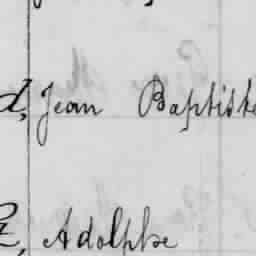 d, Jean Baptiste
Adolphe